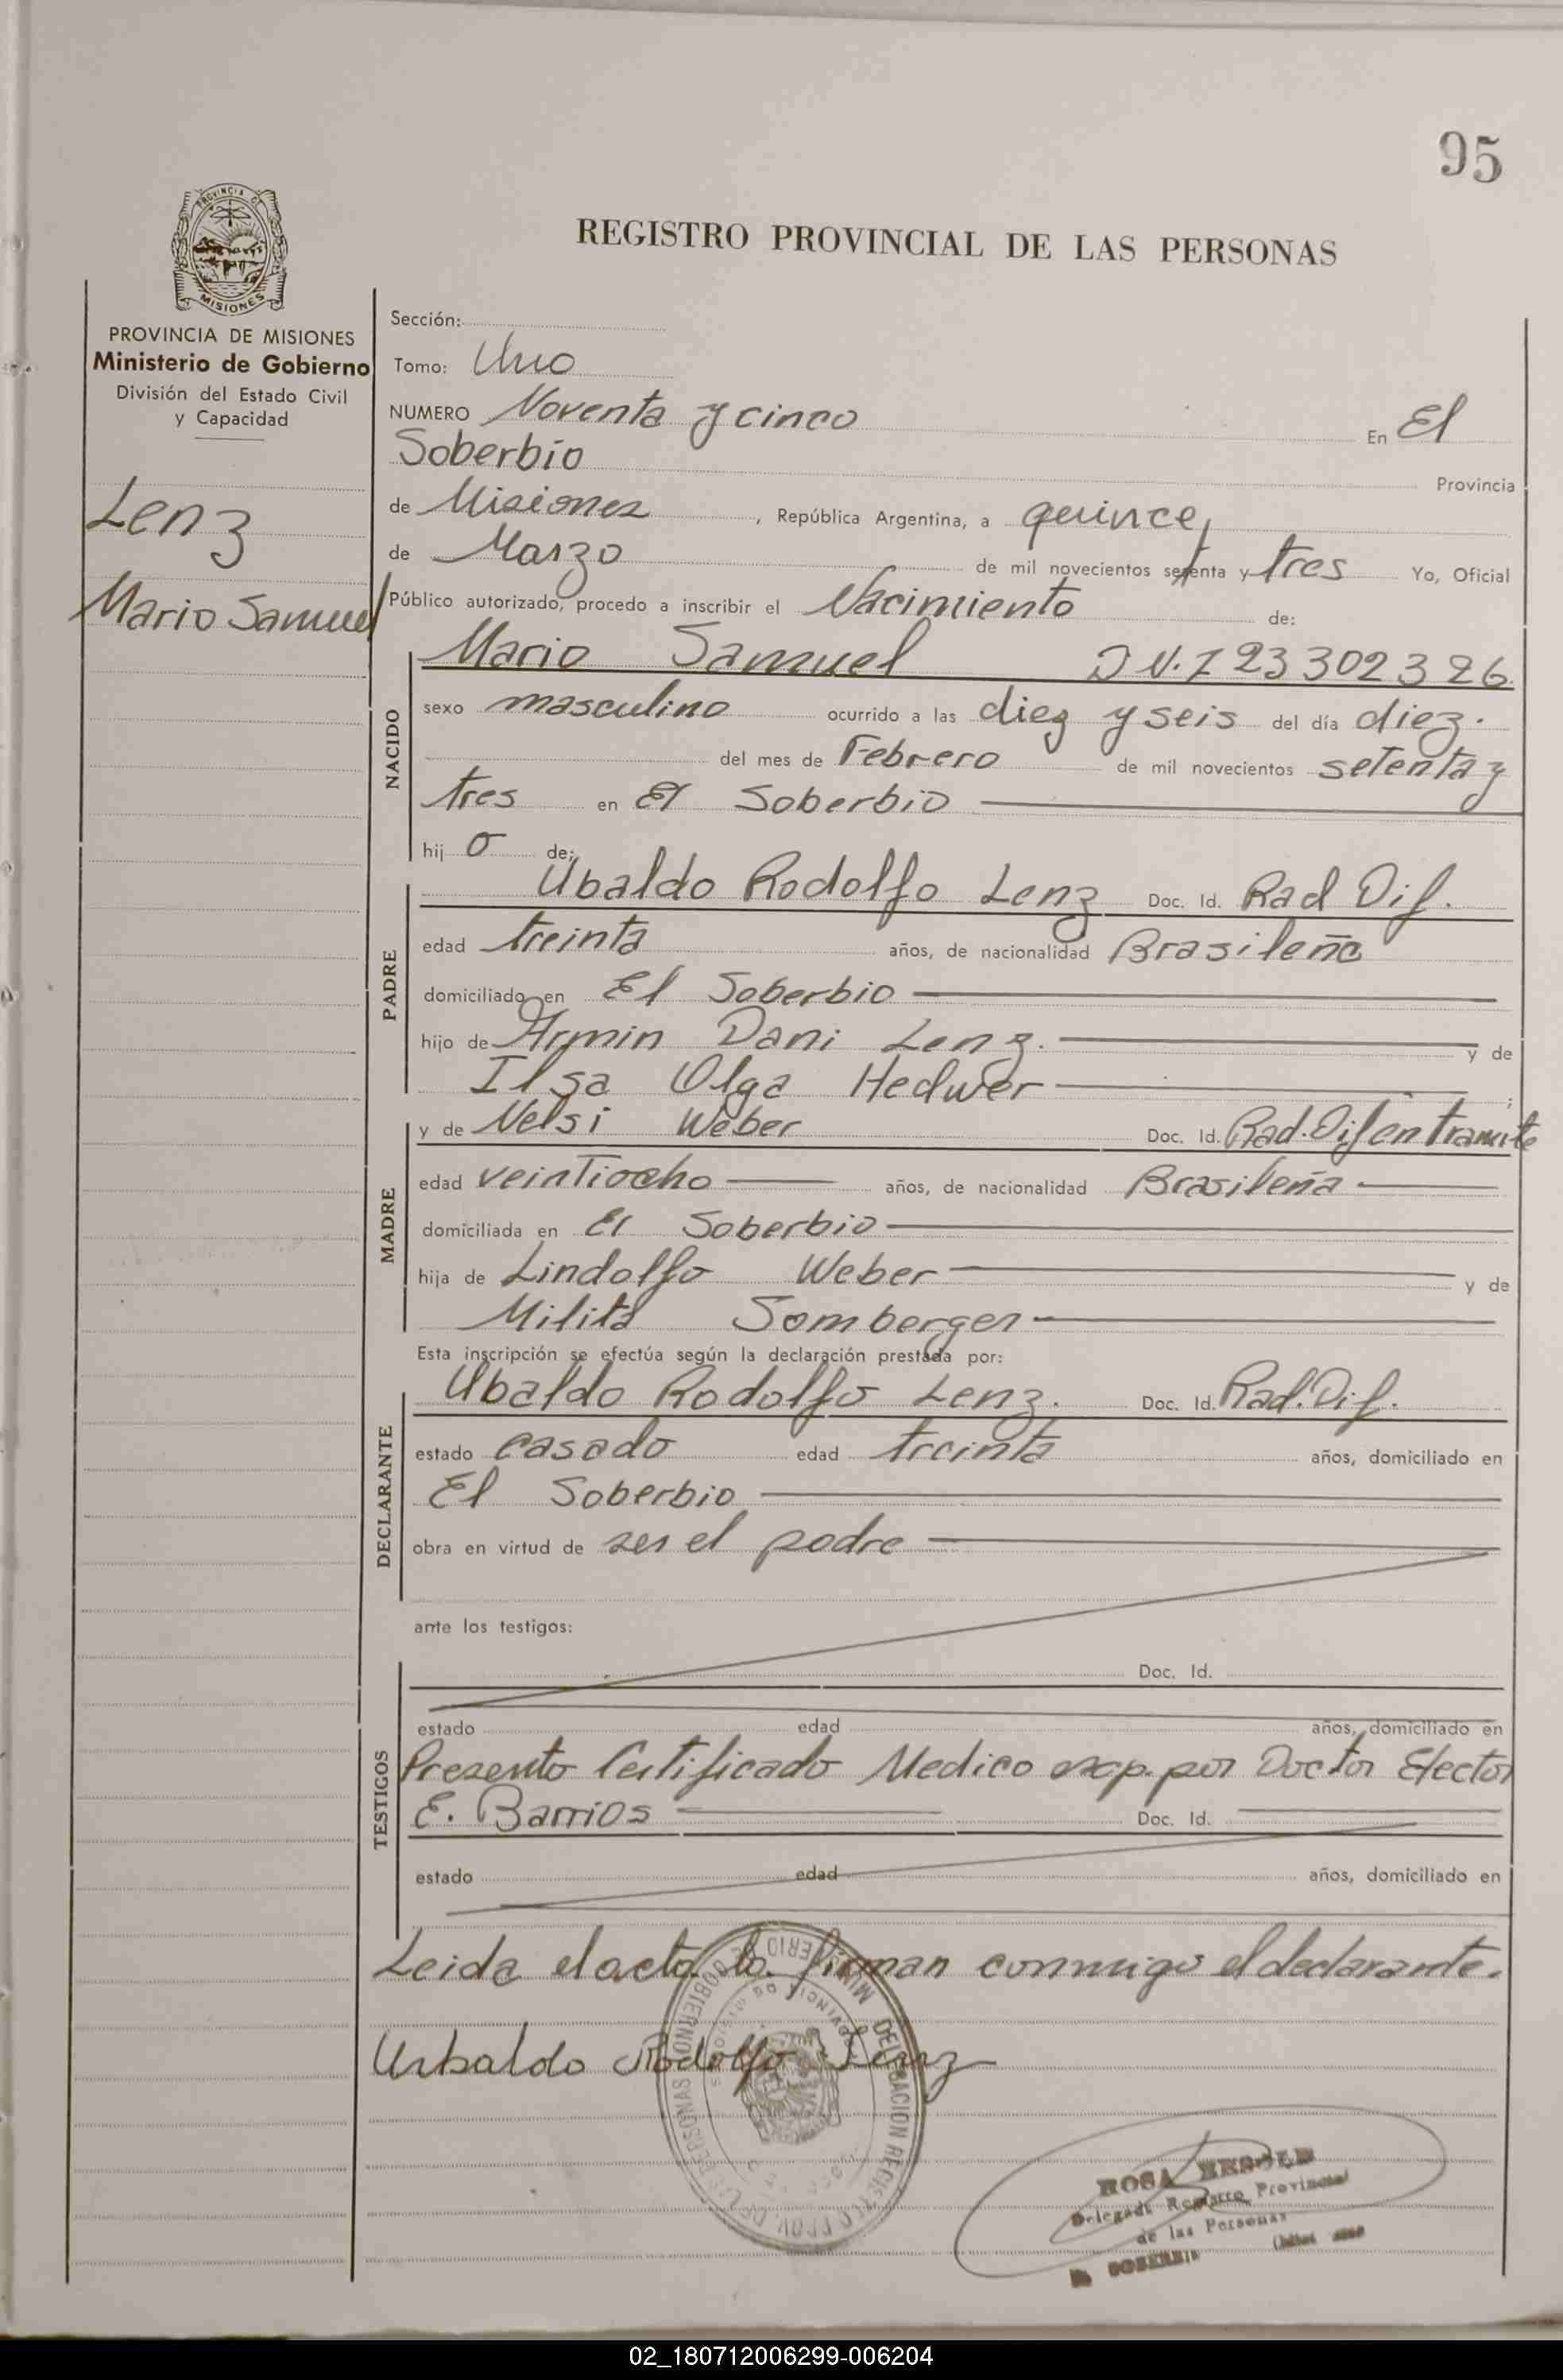 95
PROVINCIA DE
MISIONES
REGISTRO PROVINCIAL DE LAS PERSONAS
PROVINCIA DE MISIONES
Ministerio de Gobierno
División del Estado Civil
y Capacidad
Lenz
Mario Samuel
Sección:
Tomo: Uno
NUMERO Noventa y cinco En El
Soberbio Provincia
de Misiones, República Argentina, a quince,
de Marzo de mil novecientos setenta y tres Yo, Oficial
Público autorizado, procedo a inscribir el Nacimiento de:
NACIDO
Mario Samuel D.N.I 23302326.
sexo masculino ocurrido a las diez y seis del día diez.
del mes de Febrero de mil novecientos setenta y
tres en El Soberbio
hij o de:
PADRE
Ubaldo Rodolfo Lenz Doc. Id. Rad Dif.
edad treinta años, de nacionalidad Brasileño
domiciliado en El Soberbio
hijo de Armin Dani Lenz. y de
Ilsa Olga Hedwer ;
MADRE
y de Nelsi Weber Doc. Id. Rad. Dif en tramite
edad veintiocho años, de nacionalidad Brasileña
domiciliada en El Soberbio
hija de Lindolfo Weber y de
Milita Somberger
Esta inscripción se efectúa según la declaración prestada por:
DECLARANTE
Ubaldo Rodolfo Lenz. Doc. Id. Rad. Dif.
estado casado edad treinta años, domiciliado en
El Soberbio
obra en virtud de ser el padre
ante los testigos:
TESTIGOS
Doc. Id.
estado edad años, domiciliado en
Presento Certificado Medico exp. por Doctor Elector
E. Barrios Doc. Id.
estado edad años, domiciliado en
Leida el acta la firman conmigo el declarante.
Urbaldo Rodolfo Lenz
MINISTERIO DE GOBIERNO
DELEGACION REGISTRO PROV. DE LAS PERSONAS
PROVINCIA DE MISIONES
ROSA
Delegada Registro Provincial
de las Personas
SOBERBIO
02_180712006299-006204